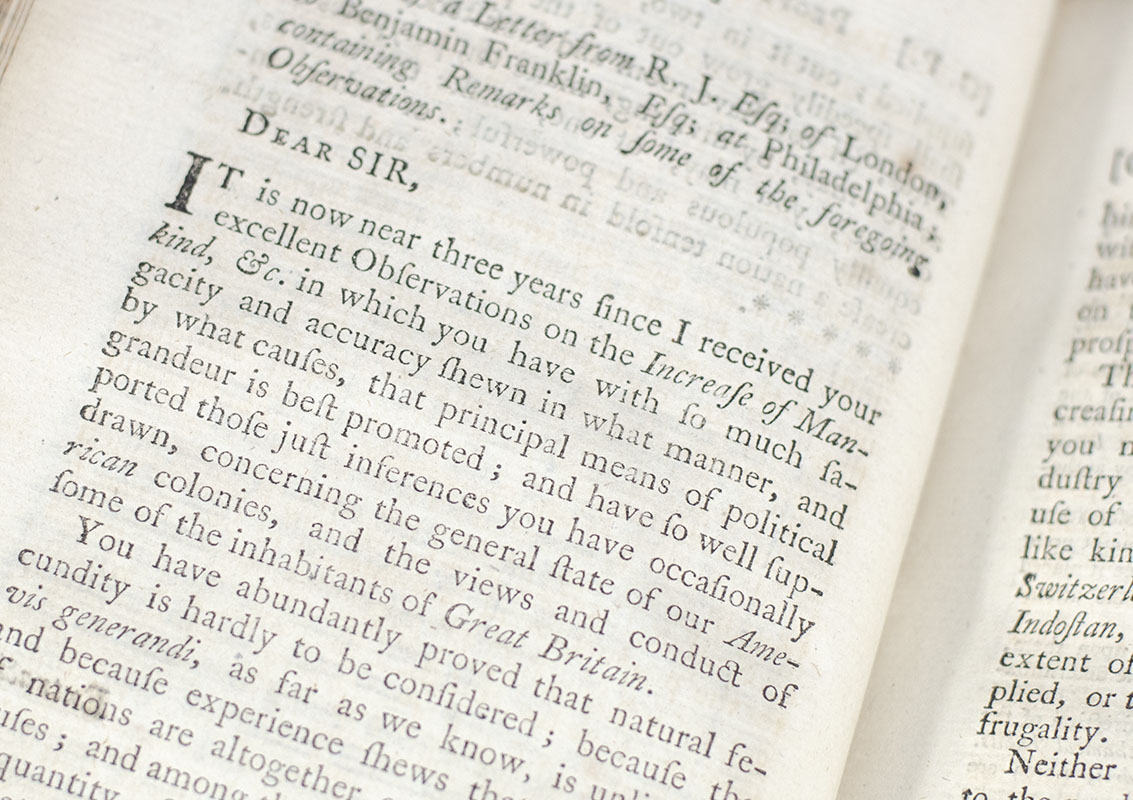 a Letter from R. J. Esq; of London,
to Benjamin Franklin, Esq; at Philadelphia;
containing Remarks on ſome of the foregoing
Obſervations.
DEAR SIR,
IT is now near three years ſince I received your
excellent Obſervations on the Increaſe of Man-
kind, &c. in which you have with ſo much ſa-
gacity and accuracy ſhewn in what manner, and
by what cauſes, that principal means of political
grandeur is beſt promoted; and have ſo well ſup-
ported thoſe juſt inferences you have occaſionally
drawn, concerning the general ſtate of our Ame-
rican colonies, and the views and conduct of
ſome of the inhabitants of Great Britain.
You have abundantly proved that natural fe-
cundity is hardly to be conſidered; becauſe the
vis generandi, as far as we know, is
and becauſe experience ſhews
nations are altogether
and among
quantity
have
on
Th
creaſin
you
duſtry
uſe of
like kin
Switzerl
Indoſtan,
extent of
plied, or
frugality.
Neither
to the